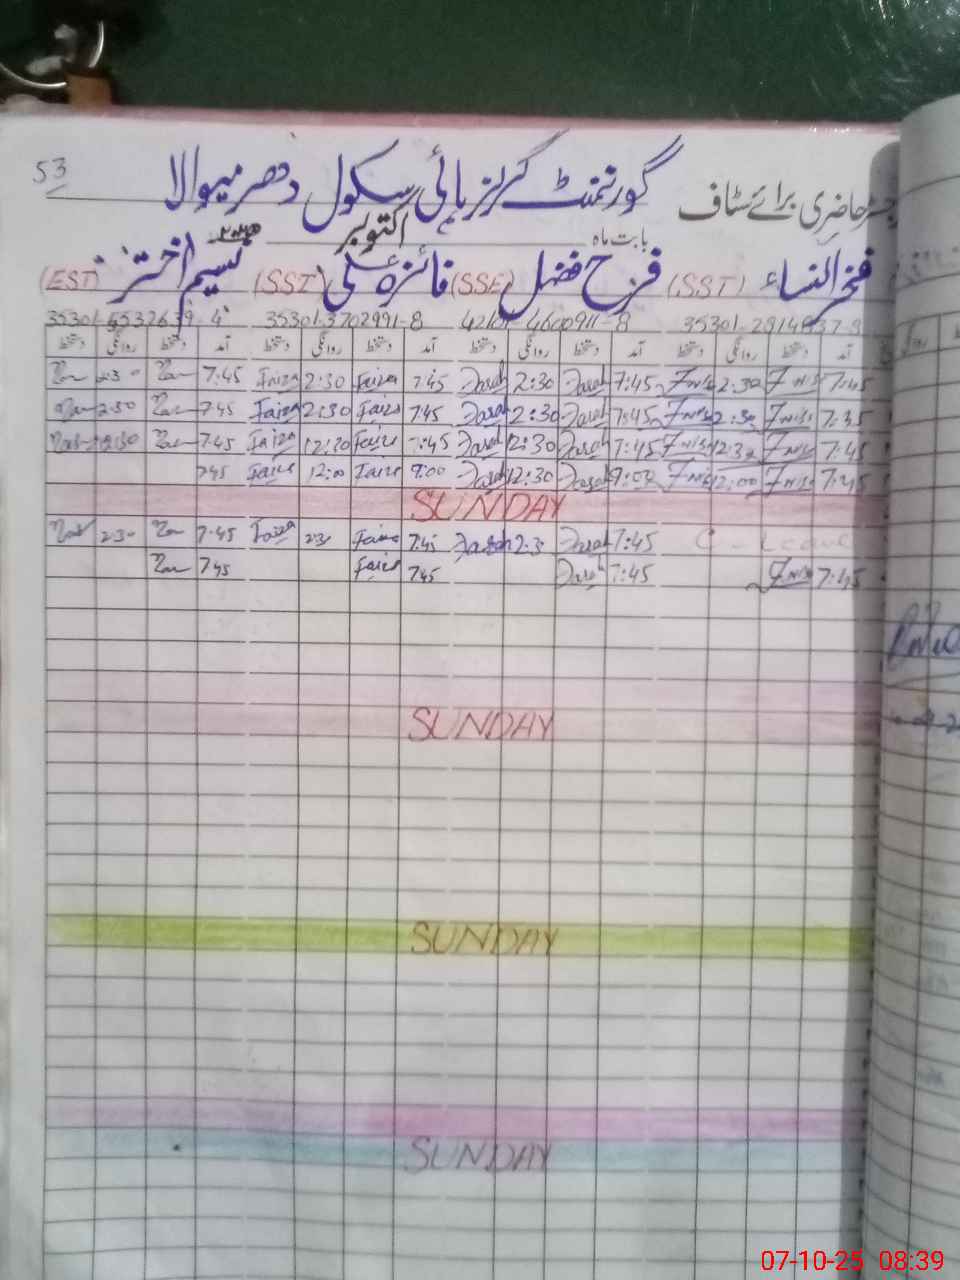 53
گورنمنٹ گرلز ہائی سکول دھرمیوالا
حاضری برائے سٹاف
بابت ماہ اکتوبر
فخر النساء (SST) فرح فضل (SSE) فائزہ علی (SST) نسیم اختر (EST)
35301-3702991-8
آمد دستخط روانگی دستخط آمد دستخط روانگی دستخط آمد دستخط روانگی دستخط آمد دستخط روانگی دستخط
2:30 7:45 Faiza 2:30 Faiza 7:45 Farah 2:30 Farah 7:45 2:30 7:45
2:30 7:45 Faiza 2:30 Faiza 7:45 Farah 2:30 Farah 7:45 2:30 7:35
12:30 7:45 Faiza 12:30 Faiza 7:45 Farah 12:30 Farah 7:45 12:30 7:45
7:45 Faiza 12:00 Faiza 9:00 Farah 12:30 Farah 12:00 7:45
SUNDAY
2:30 7:45 Faiza 2:3 Faiza 7:45 Farah 2:3 Farah 7:45 C-Leave
7:45 Faiza 7:45 Farah 7:45 7:45
SUNDAY
SUNDAY
SUNDAY
07-10-25 08:39